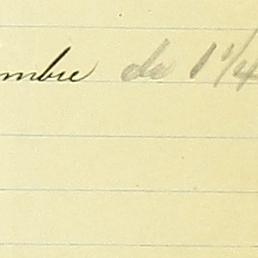 mbre de 1 1/4